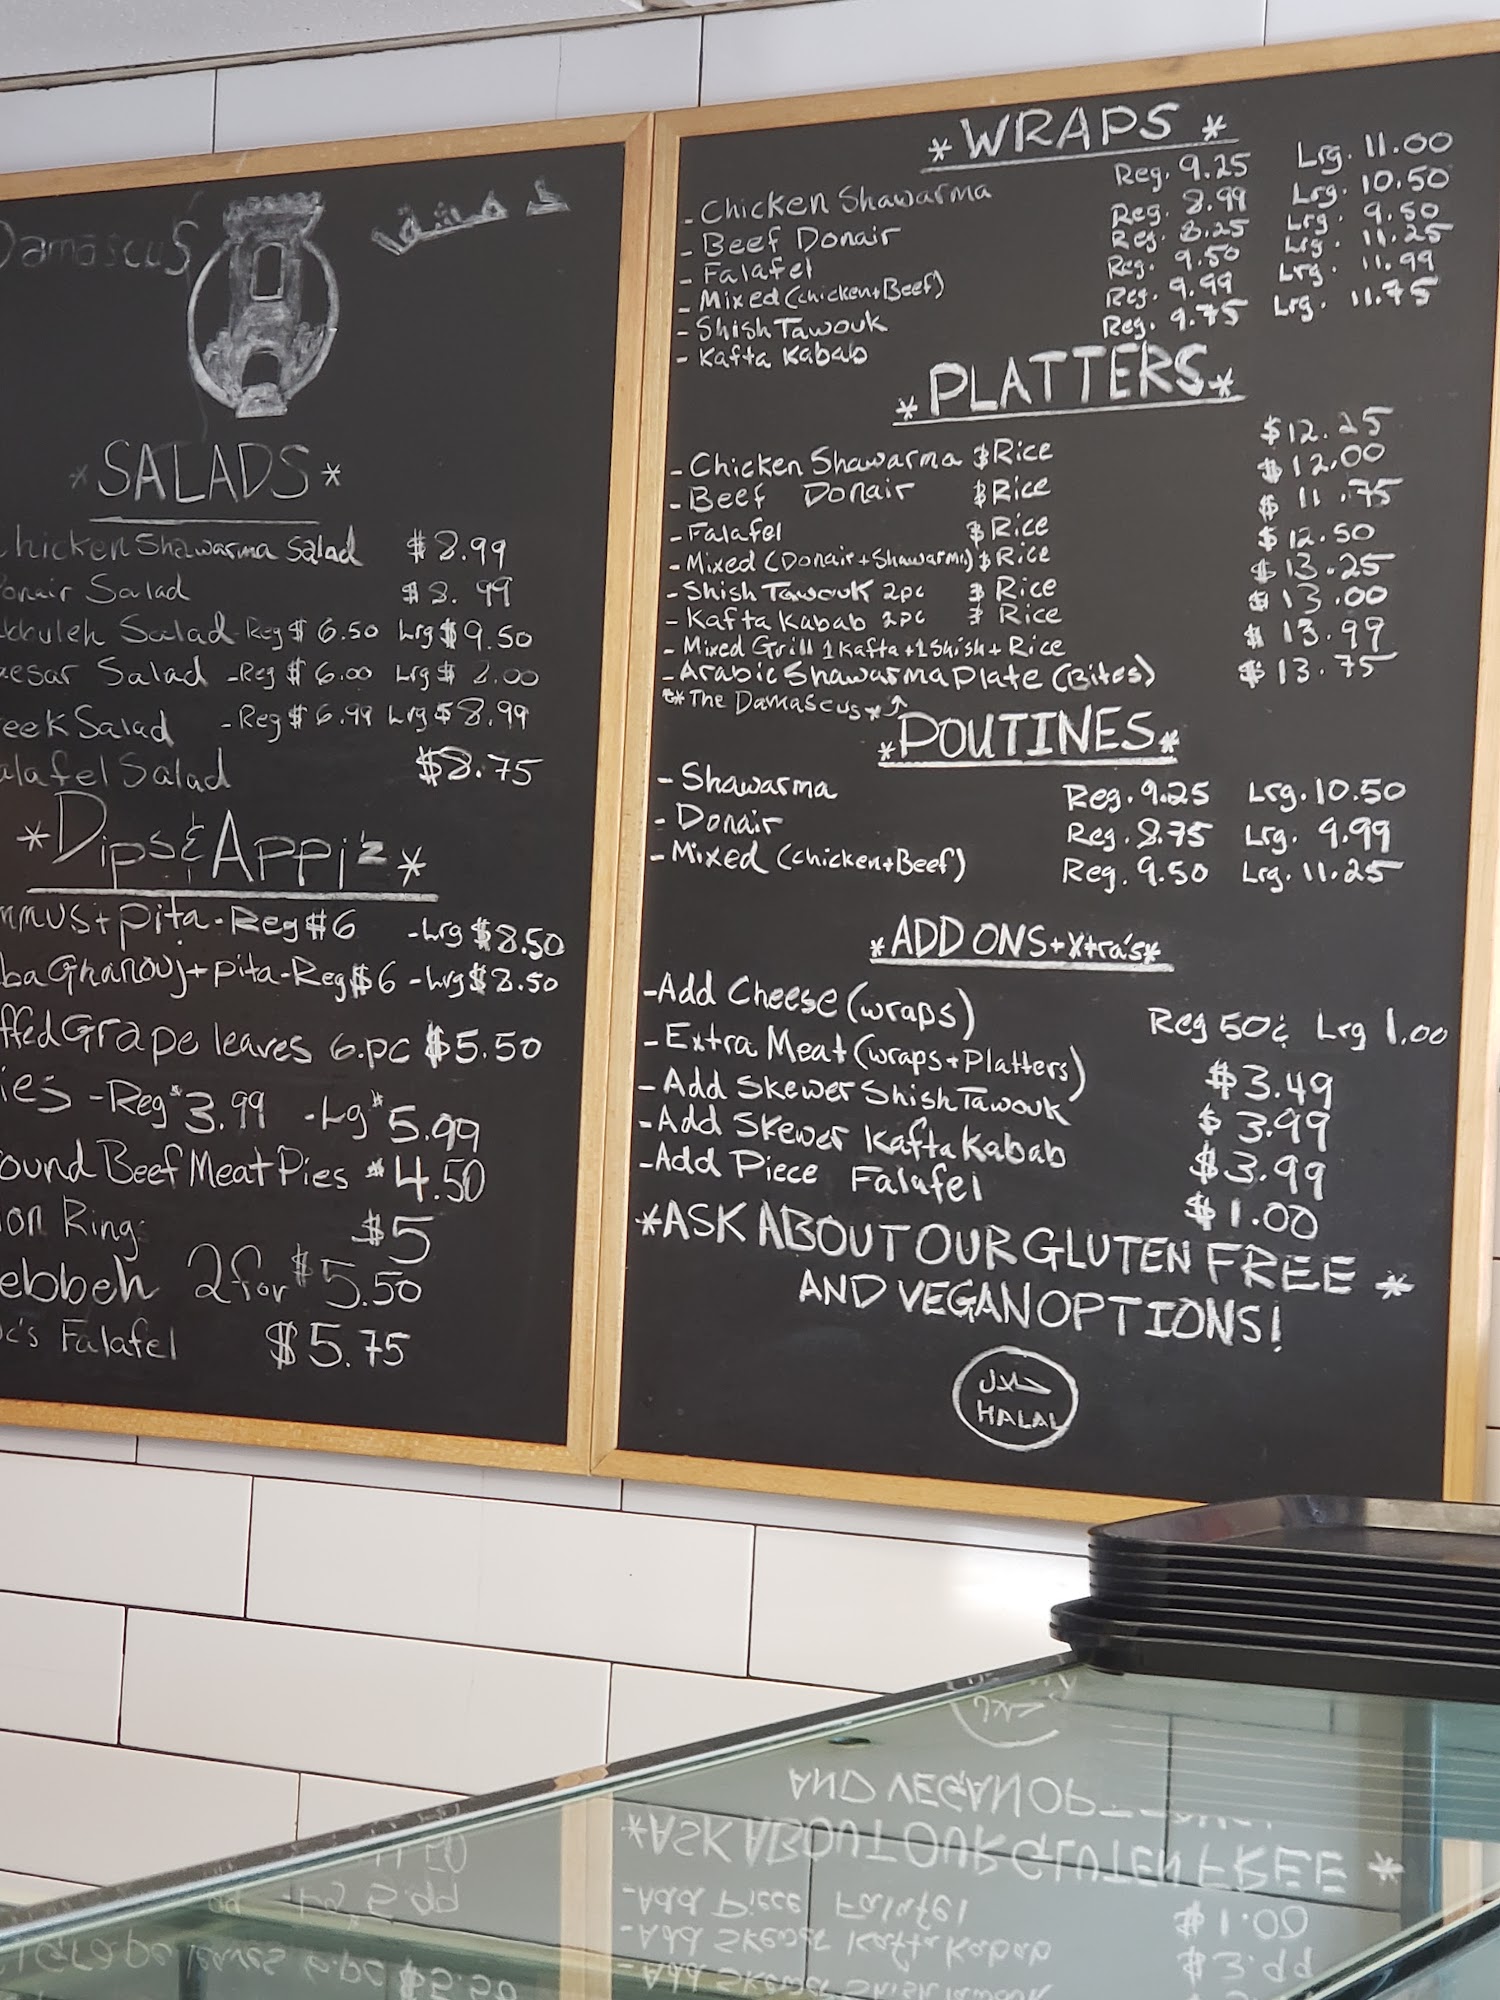 Damascus دمشق
*SALADS*
hicken Shawarma Salad $8.99
onair Salad $8.99
bbuleh Salad-Reg$ 6.50 Lrg$9.50
esar Salad -Reg$ 6.00 Lrg$ 8.00
eek Salad -Reg$6.99 Lrg$8.99
alafel Salad $8.75
*Dips & Appiz*
mmus+pita-Reg$6 -Lrg$8.50
ba Ghanouj+pita-Reg$6 -Lrg$8.50
ffed Grape leaves 6.pc $5.50
ies -Reg$3.99 -Lg$5.99
ound Beef Meat Pies $4.50
ion Rings $5
ebbeh 2for$5.50
c's Falafel $5.75
*WRAPS*
-Chicken Shawarma Reg. 9.25 Lrg. 11.00
-Beef Donair Reg. 8.99 Lrg. 10.50
-Falafel Reg. 8.25 Lrg. 9.50
-Mixed (Chicken+Beef) Reg. 9.50 Lrg. 11.25
-Shish Tawouk Reg. 9.99 Lrg. 11.99
-Kafta Kabab Reg. 9.75 Lrg. 11.75
*PLATTERS*
-Chicken Shawarma & Rice $12.25
-Beef Donair & Rice $12.00
-Falafel & Rice $11.75
-Mixed (Donair+Shawarma) & Rice $12.50
-Shish Tawouk 2pc & Rice $13.25
-Kafta Kabab 2pc & Rice $13.00
-Mixed Grill 1Kafta+1Shish+Rice $13.99
-Arabic Shawarma Plate (Bites) $13.75
**The Damascus*
*POUTINES*
-Shawarma Reg. 9.25 Lrg. 10.50
-Donair Reg. 8.75 Lrg. 9.99
-Mixed (Chicken+Beef) Reg. 9.50 Lrg. 11.25
*ADD ONS+Xtra's*
-Add Cheese (wraps) Reg 50¢ Lrg 1.00
-Extra Meat (wraps+Platters) $3.49
-Add Skewer Shish Tawouk $3.99
-Add Skewer Kafta Kabab $3.99
-Add Piece Falafel $1.00
*ASK ABOUT OUR GLUTEN FREE *
AND VEGAN OPTIONS!
حلال
HALAL